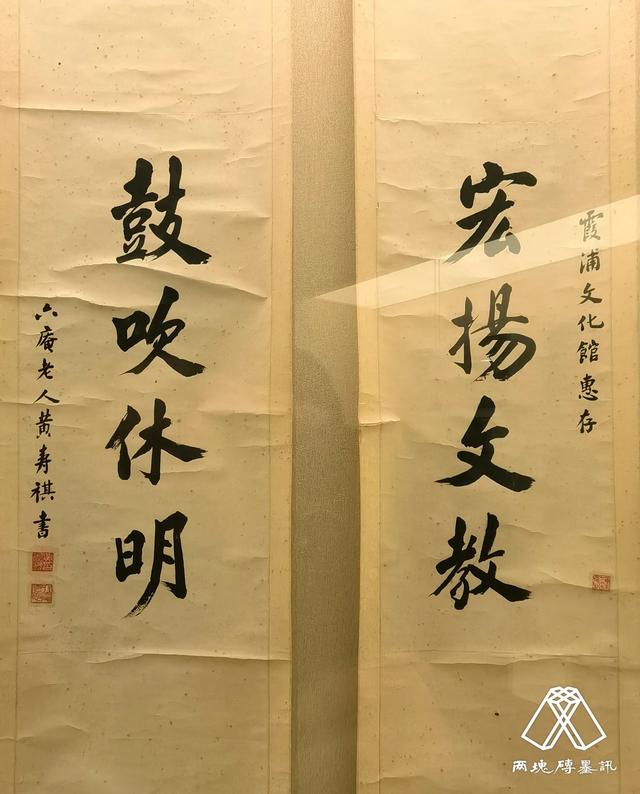 霞浦文化館惠存
宏揚文教
鼓吹休明
六庵老人黄寿祺書
两塊磚墨訊